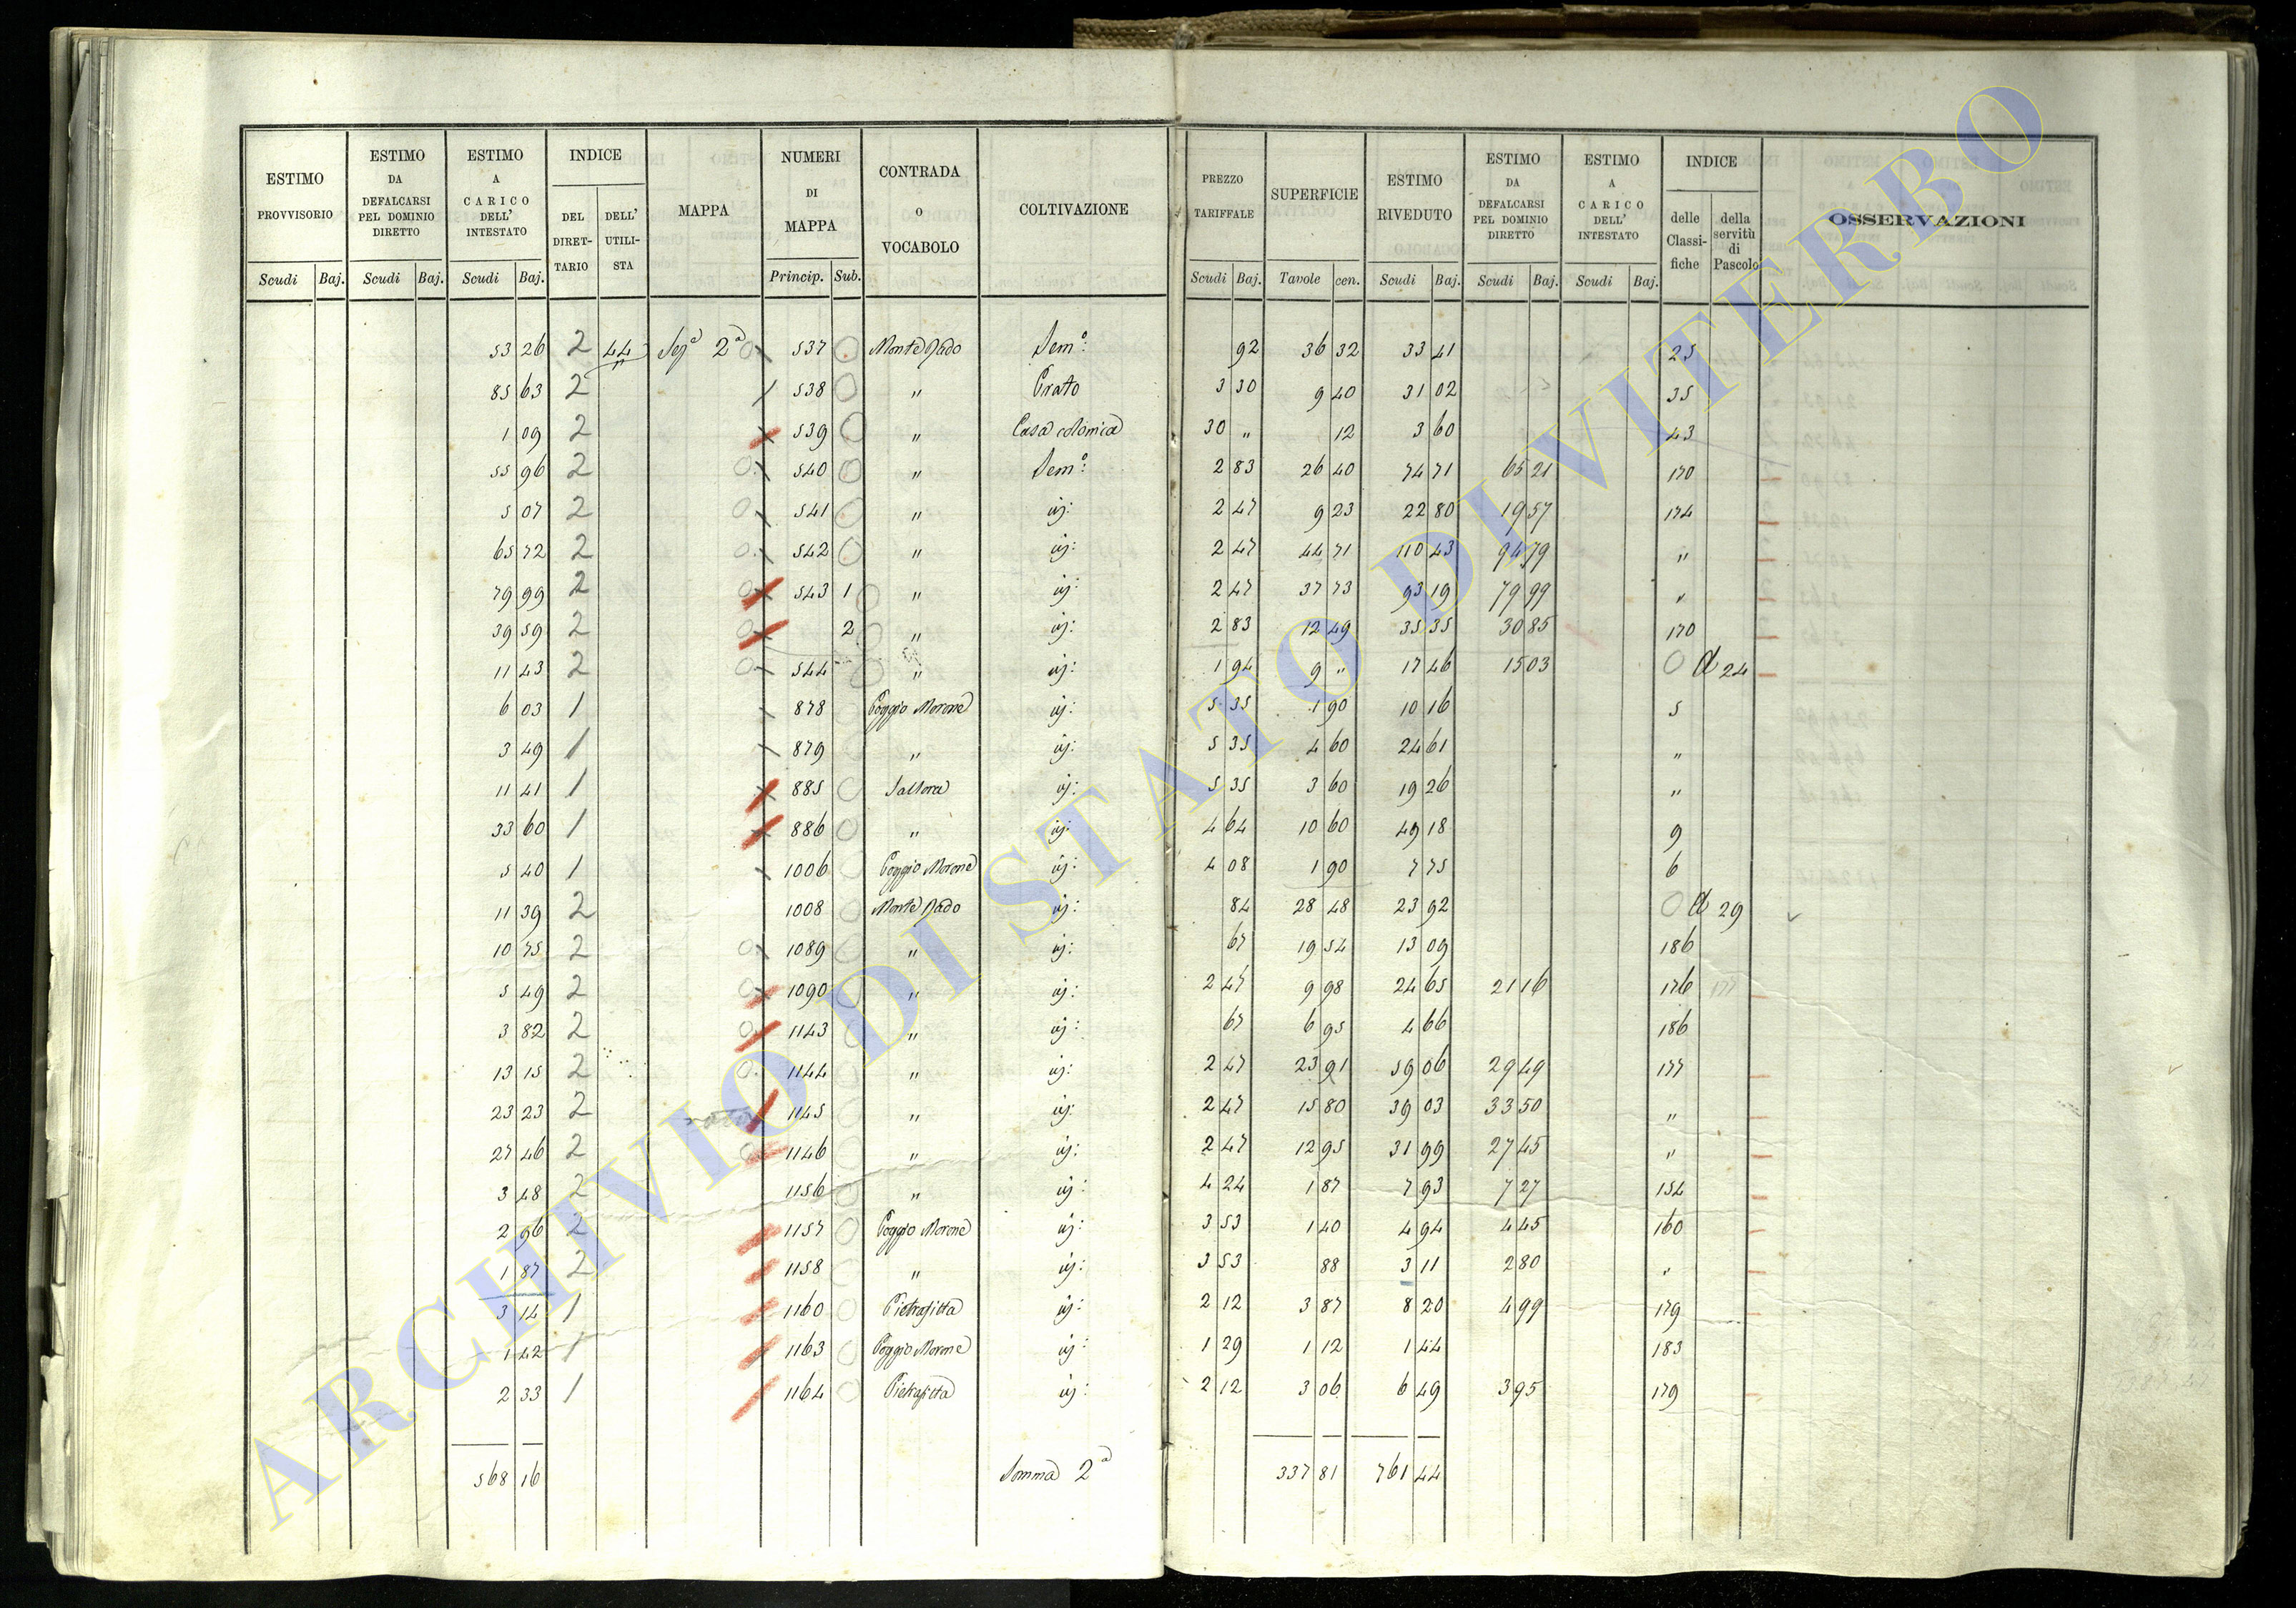 ESTIMO PROVVISORIO Scudi Baj. ESTIMO DA DEFALCARSI PEL DOMINIO DIRETTO Scudi Baj. ESTIMO A CARICO DELL' INTESTATO Scudi Baj. INDICE DEL DIRETTARIO DELL' UTILISTA MAPPA NUMERI DI MAPPA Princip. Sub. CONTRADA O VOCABOLO COLTIVAZIONE PREZZO TARIFFALE Scudi Baj. SUPERFICIE Tavole cen. ESTIMO RIVEDUTO Scudi Baj. ESTIMO DA DEFALCARSI PEL DOMINIO DIRETTO Scudi Baj. ESTIMO A CARICO DELL' INTESTATO Scudi Baj. INDICE delle Classifiche della servitù di Pascolo OSSERVAZIONI
53 26 2 44 Sez.a 2a 537 Monte Jado Sem.o: 92 36 32 33 41 25
85 63 2 538 " Prato 3 30 9 40 31 02 35
1 09 2 539 " Casa colonica 30 " 12 3 60 43
55 96 2 540 " Sem.o: 2 83 26 40 74 71 65 21 170
5 07 2 541 " ij: 2 47 9 23 22 80 19 57 174
65 72 2 542 " ij: 2 47 44 71 110 43 94 79 "
79 99 2 543 1 " ij: 2 47 37 73 93 19 79 99 "
39 59 2 2 " ij: 2 83 12 49 35 35 30 85 170
11 43 2 544 " ij: 1 94 9 " 17 46 15 03 24
6 03 1 878 Poggio Morone ij: 5 35 1 90 10 16 5
3 49 1 879 " ij: 5 35 4 60 24 61 "
11 41 1 885 ij: 5 35 3 60 19 26 "
33 60 1 886 " ij: 4 64 10 60 49 18 9
5 40 1 1006 Poggio Morone ij: 4 08 1 90 7 75 6
11 39 2 1008 Monte Jado ij: 84 28 48 23 92 29
10 75 2 1089 " ij: 67 19 54 13 09 186
5 49 2 1090 " ij: 2 47 9 98 24 65 21 16 176 177
3 82 2 1143 " ij: 67 6 95 4 66 186
13 15 2 1144 " ij: 2 47 23 91 59 06 29 49 177
23 23 2 1145 " ij: 2 47 15 80 39 03 33 50 "
27 46 2 1146 " ij: 2 47 12 95 31 99 27 45 "
3 48 2 1156 " ij: 4 24 1 87 7 93 7 27 154
2 96 2 1157 Poggio Morone ij: 3 53 1 40 4 94 4 45 160
1 87 2 1158 " ij: 3 53 88 3 11 2 80 "
3 14 1 1160 Pietrafitta ij: 2 12 3 87 8 20 4 99 179
1 42 1 1163 Poggio Morone ij: 1 29 1 12 1 44 183
2 33 1 1164 Pietrafitta ij: 2 12 3 06 6 49 3 95 179
568 16 Somma 2a 337 81 761 44
ARCHIVIO DI STATO DI VITERBO